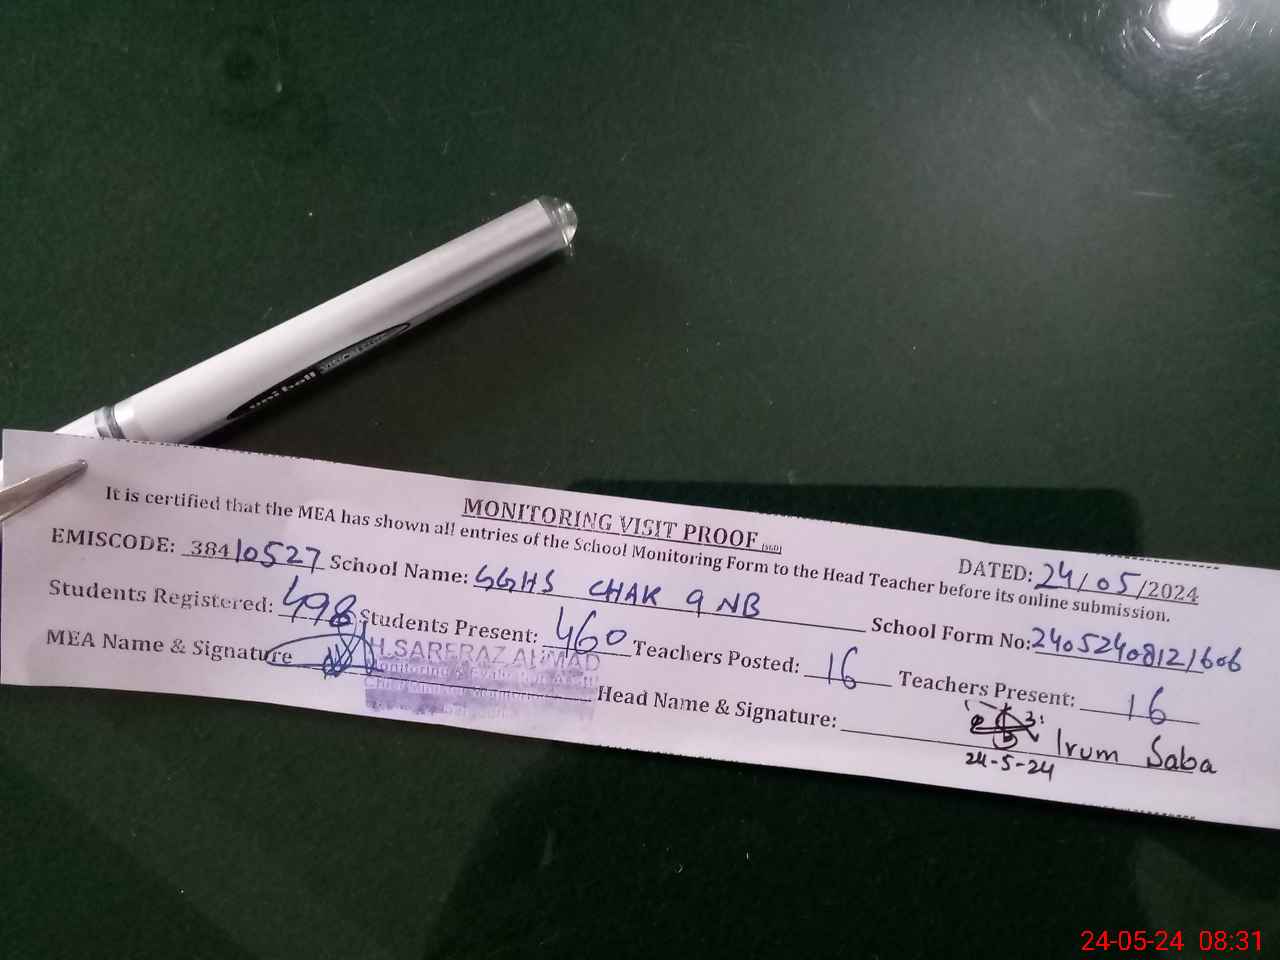 uni-ball VISION ELITE
MONITORING VISIT PROOF (360)
DATED: 24/05/2024
It is certified that the MEA has shown all entries of the School Monitoring Form to the Head Teacher before its online submission.
EMISCODE: 38410527 School Name: GGHS CHAK 9 NB School Form No: 24052408121606
Students Registered: 498 Students Present: 460 Teachers Posted: 16 Teachers Present: 16
MEA Name & Signature H.SARFRAZ AHMAD Head Name & Signature: Irum Saba
Monitoring & Evaluation
Chief Minister Monitoring
24-5-24
24-05-24 08:31